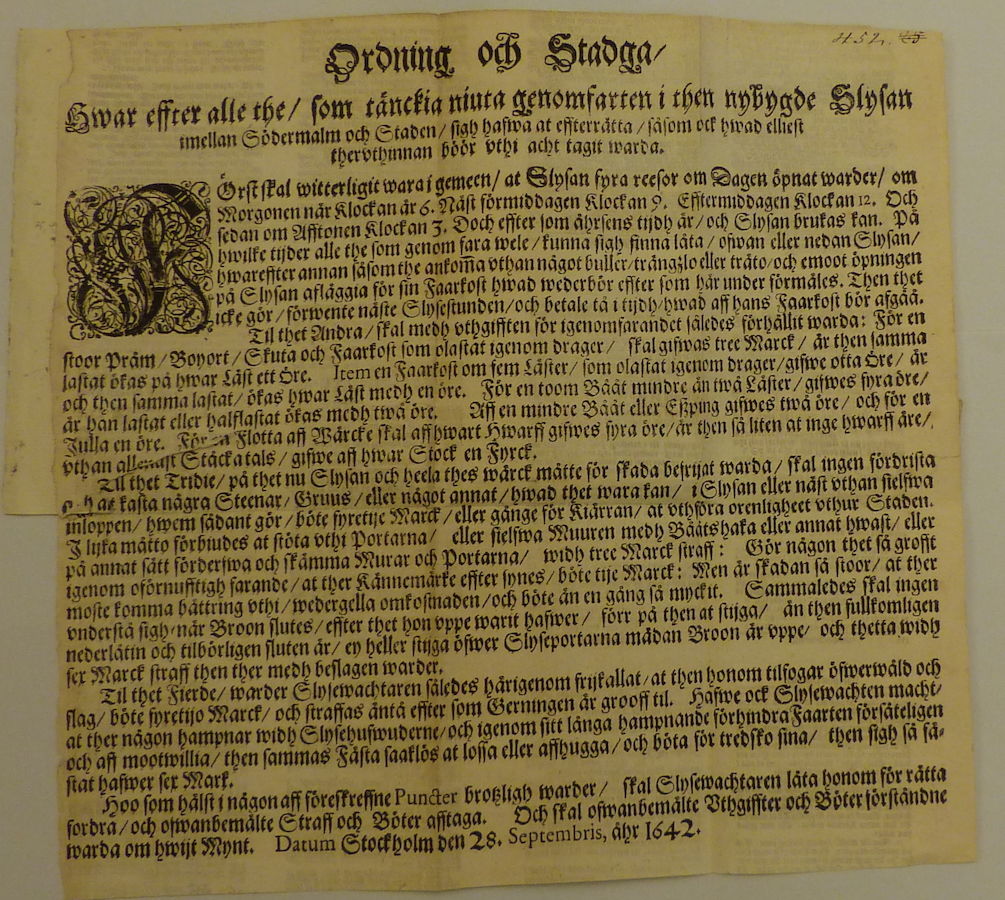 452.
Ordning och Stadga/
Hwar effter alle the/ som tänckia niuta genomfarten i then nybygde Slysan
imellan Södermalm och Staden/ sigh hafwa at effterrätta/ såsom ock hwad elliest
thervthinnan böör vthi acht tagit warda.
FÖrst skal witterligit wara i gemeen/ at Slysan fyra reesor om Dagen öpnat warder/ om
Morgonen när Klockan är 6. Näst förmiddagen Klockan 9. Efftermiddagen Klockan 12. Och
sedan om Afftonen Klockan 3. Doch effter som åhrsens tijdh är/ och Slysan brukas kan. På
hwilke tijder alle the som genom fara wele/ kunna sigh finna låta/ ofwan eller nedan Slysan/
hwareffter annan såsom the ankom̄a vthan något buller/ trängzlo eller träto/ och emoot öpningen
på Slysan afläggia för sin Faarkost hwad wederbör effter som här under förmäles. Then thet
icke gör/ förwente näste Slysestunden/ och betale tå i tijdh/ hwad aff hans Faarkost bör afgåå.
Til thet Andra/ skal medh vthgifften för igenomfarandet således förhållit warda: För en
stoor Pråm/ Boyort/ Skuta och Faarkost som olastat igenom drager/ skal gifwas tree Marck/ är then samma
lastat ökas på hwar Läst ett öre. Item en Faarkost om fem Läster/ som olastat igenom drager/ gifwe otta öre/ är
och then samma lastat/ ökas hwar Läst medh en öre. För en toom Bååt mindre än twå Läster/ gifwes fyra öre/
är han lastat eller halflastat ökas medh twå öre. Aff en mindre Bååt eller Eßping gifwes twå öre/ och för en
Julla en öre. För en Flotta aff Wärcke skal aff hwart Hwarff gifwes fyra öre/ är then så liten at inge hwarff äre/
vthan allenast Stäckatals/ gifwe aff hwar Stock en Fyrck.
Til thet Tridie/ på thet nu Slysan och heela thes wärck måtte för skada befrijat warda/ skal ingen fördrista
kasta några Steenar/ Gruus/ eller något annat/ hwad thet wara kan/ i Slysan eller näst vthan sielfwa
inloppen/ hwem sådant gör/ böte fyretije Marck/ eller gånge för Kiärran/ at vthföra orenligheet vthur Staden.
I lijka måtto förbiudes at stöta vthi Portarna/ eller sielfwa Muuren medh Bååtshaka eller annat hwast/ eller
på annat sätt förderfwa och skämma Murar och Portarna/ widh tree Marck straff: Gör någon thet så grofft
igenom oförnufftigh farande/ at ther Kännemärke effter synes/ böte tije Marck: Men är skadan så stoor/ at ther
moste komma bättring vthi/ wedergella omkostnaden/ och böte än en gång så myckit. Sammaledes skal ingen
vnderstå sigh/ när Broon slutes/ effter thet hon vppe warit hafwer/ förr på then at stijga/ än then fullkomligen
nederlåtin och tilbörligen sluten är/ ey heller stijga öfwer Slyseportarna mädan Broon är vppe/ och thetta widh
sex Marck straff then ther medh beslagen warder.
Til thet Fierde/ warder Slysewachtaren således härigenom frijkallat/ at then honom tilfogar öfwerwåld och
slag/ böte fyretijo Marck/ och straffas ändå effter som Gerningen är grooff til. Hafwe ock Slysewachten macht/
at ther någon hampnar widh Slysehufwuderne/ och igenom sitt långa hampnande förhindra Faarten försåteligen
och aff mootwillia/ then sammas Fästa saaklös at lossa eller affhugga/ och böta för tredsko sina/ then sigh så få-
stat hafwer sex Mark.
Hoo som hälst i någon aff föreskreffne Puncter brotzligh warder/ skal Slysewachtaren låta honom för rätta
fordra/ och ofwanbemälte Straff och Böter afftaga. Och skal ofwanbemälte Vthgiffter och Böter förståndne
warda om hwijt Mynt. Datum Stockholm den 28. Septembris, åhr 1642.